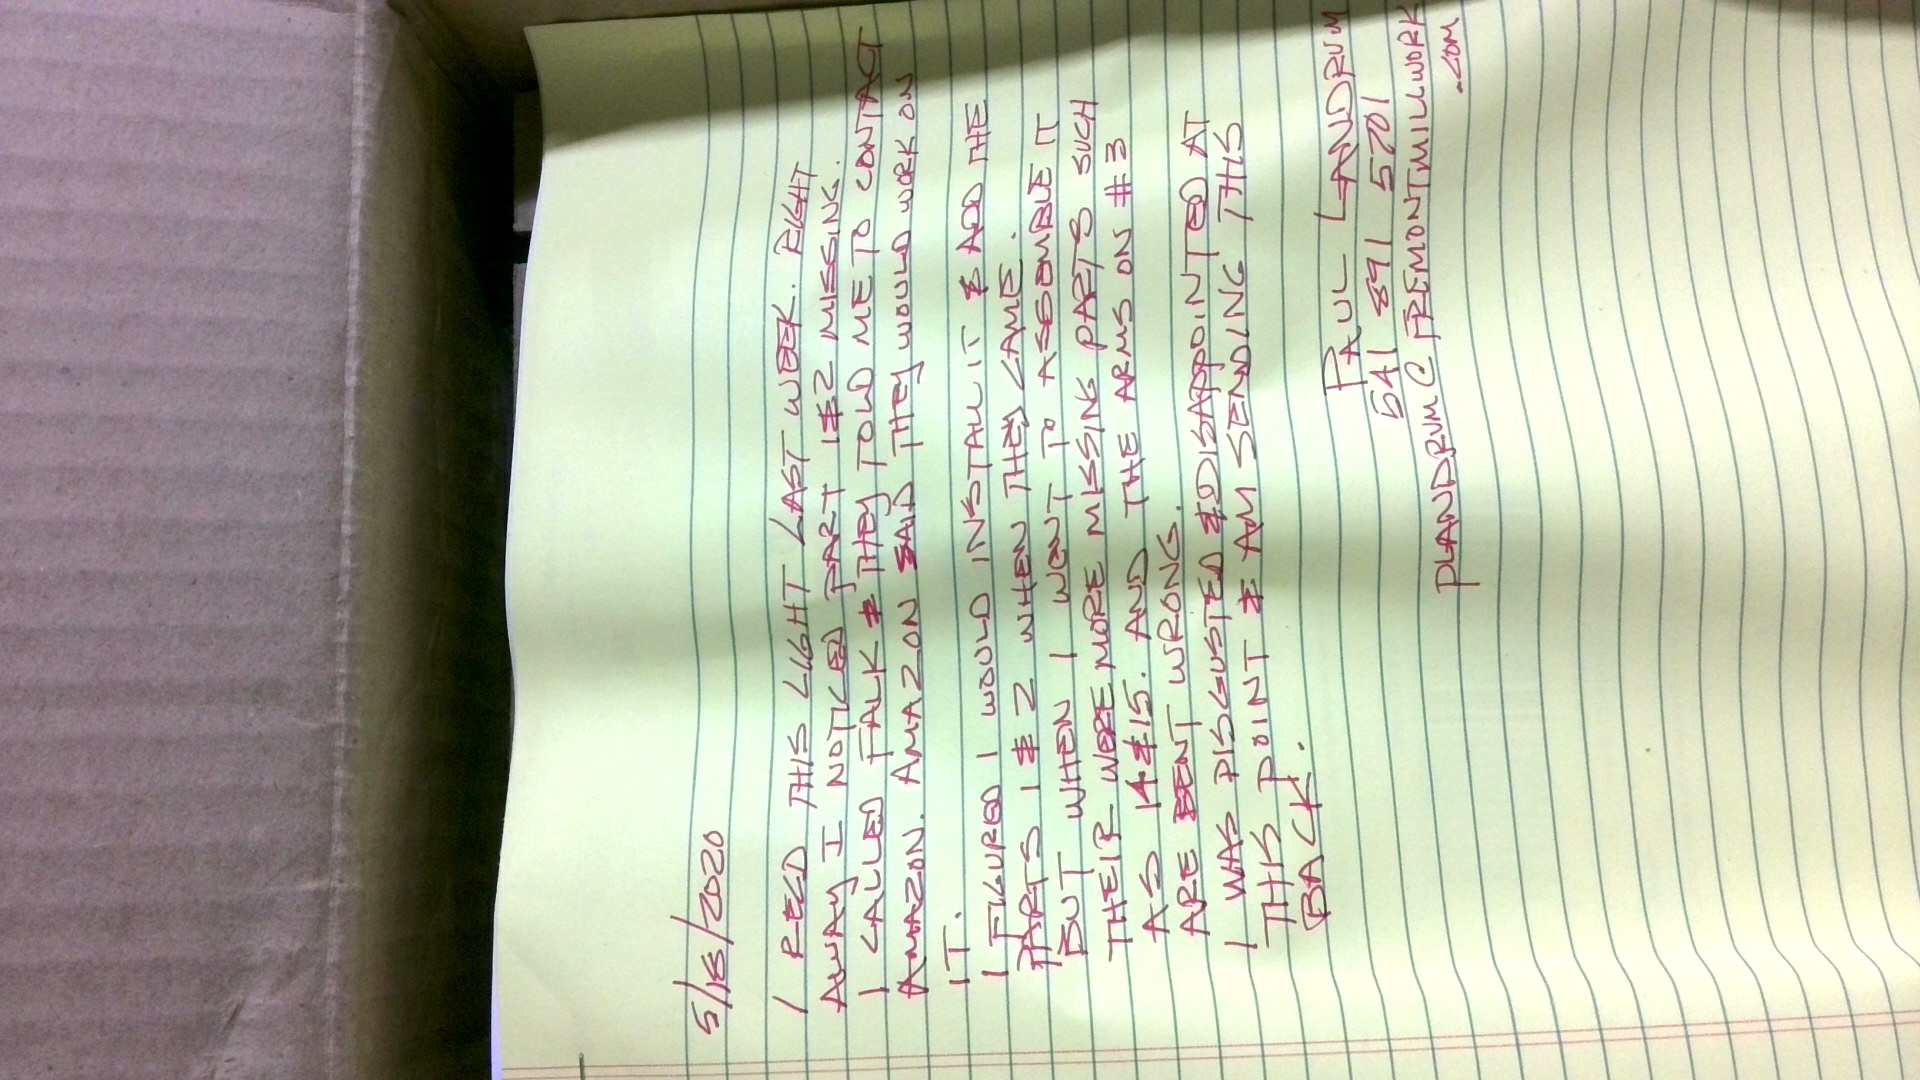 5/18/2020
I RECD THIS LIGHT LAST WEEK. RIGHT
AWAY I NOTICED PART 1&2 MISSING.
I CALLED FALK & THEY TOLD ME TO CONTACT
AMAZON. AMAZON SAID THEY WOULD WORK ON
IT.
I FIGURED I WOULD INSTALL IT & ADD THE
PARTS 1 & 2 WHEN THEY CAME.
BUT WHEN I WENT TO ASSEMBLE IT
THEIR WERE MORE MISSING PARTS SUCH
AS 14&15. AND THE ARMS ON #3
ARE BENT WRONG.
I WAS DISGUSTED & DISAPPOINTED AT
THIS POINT & AM SENDING THIS
BACK.
PAUL LANDRUM
541 891 5701
PLANDRUM@FREMONTMILLWORK
.COM